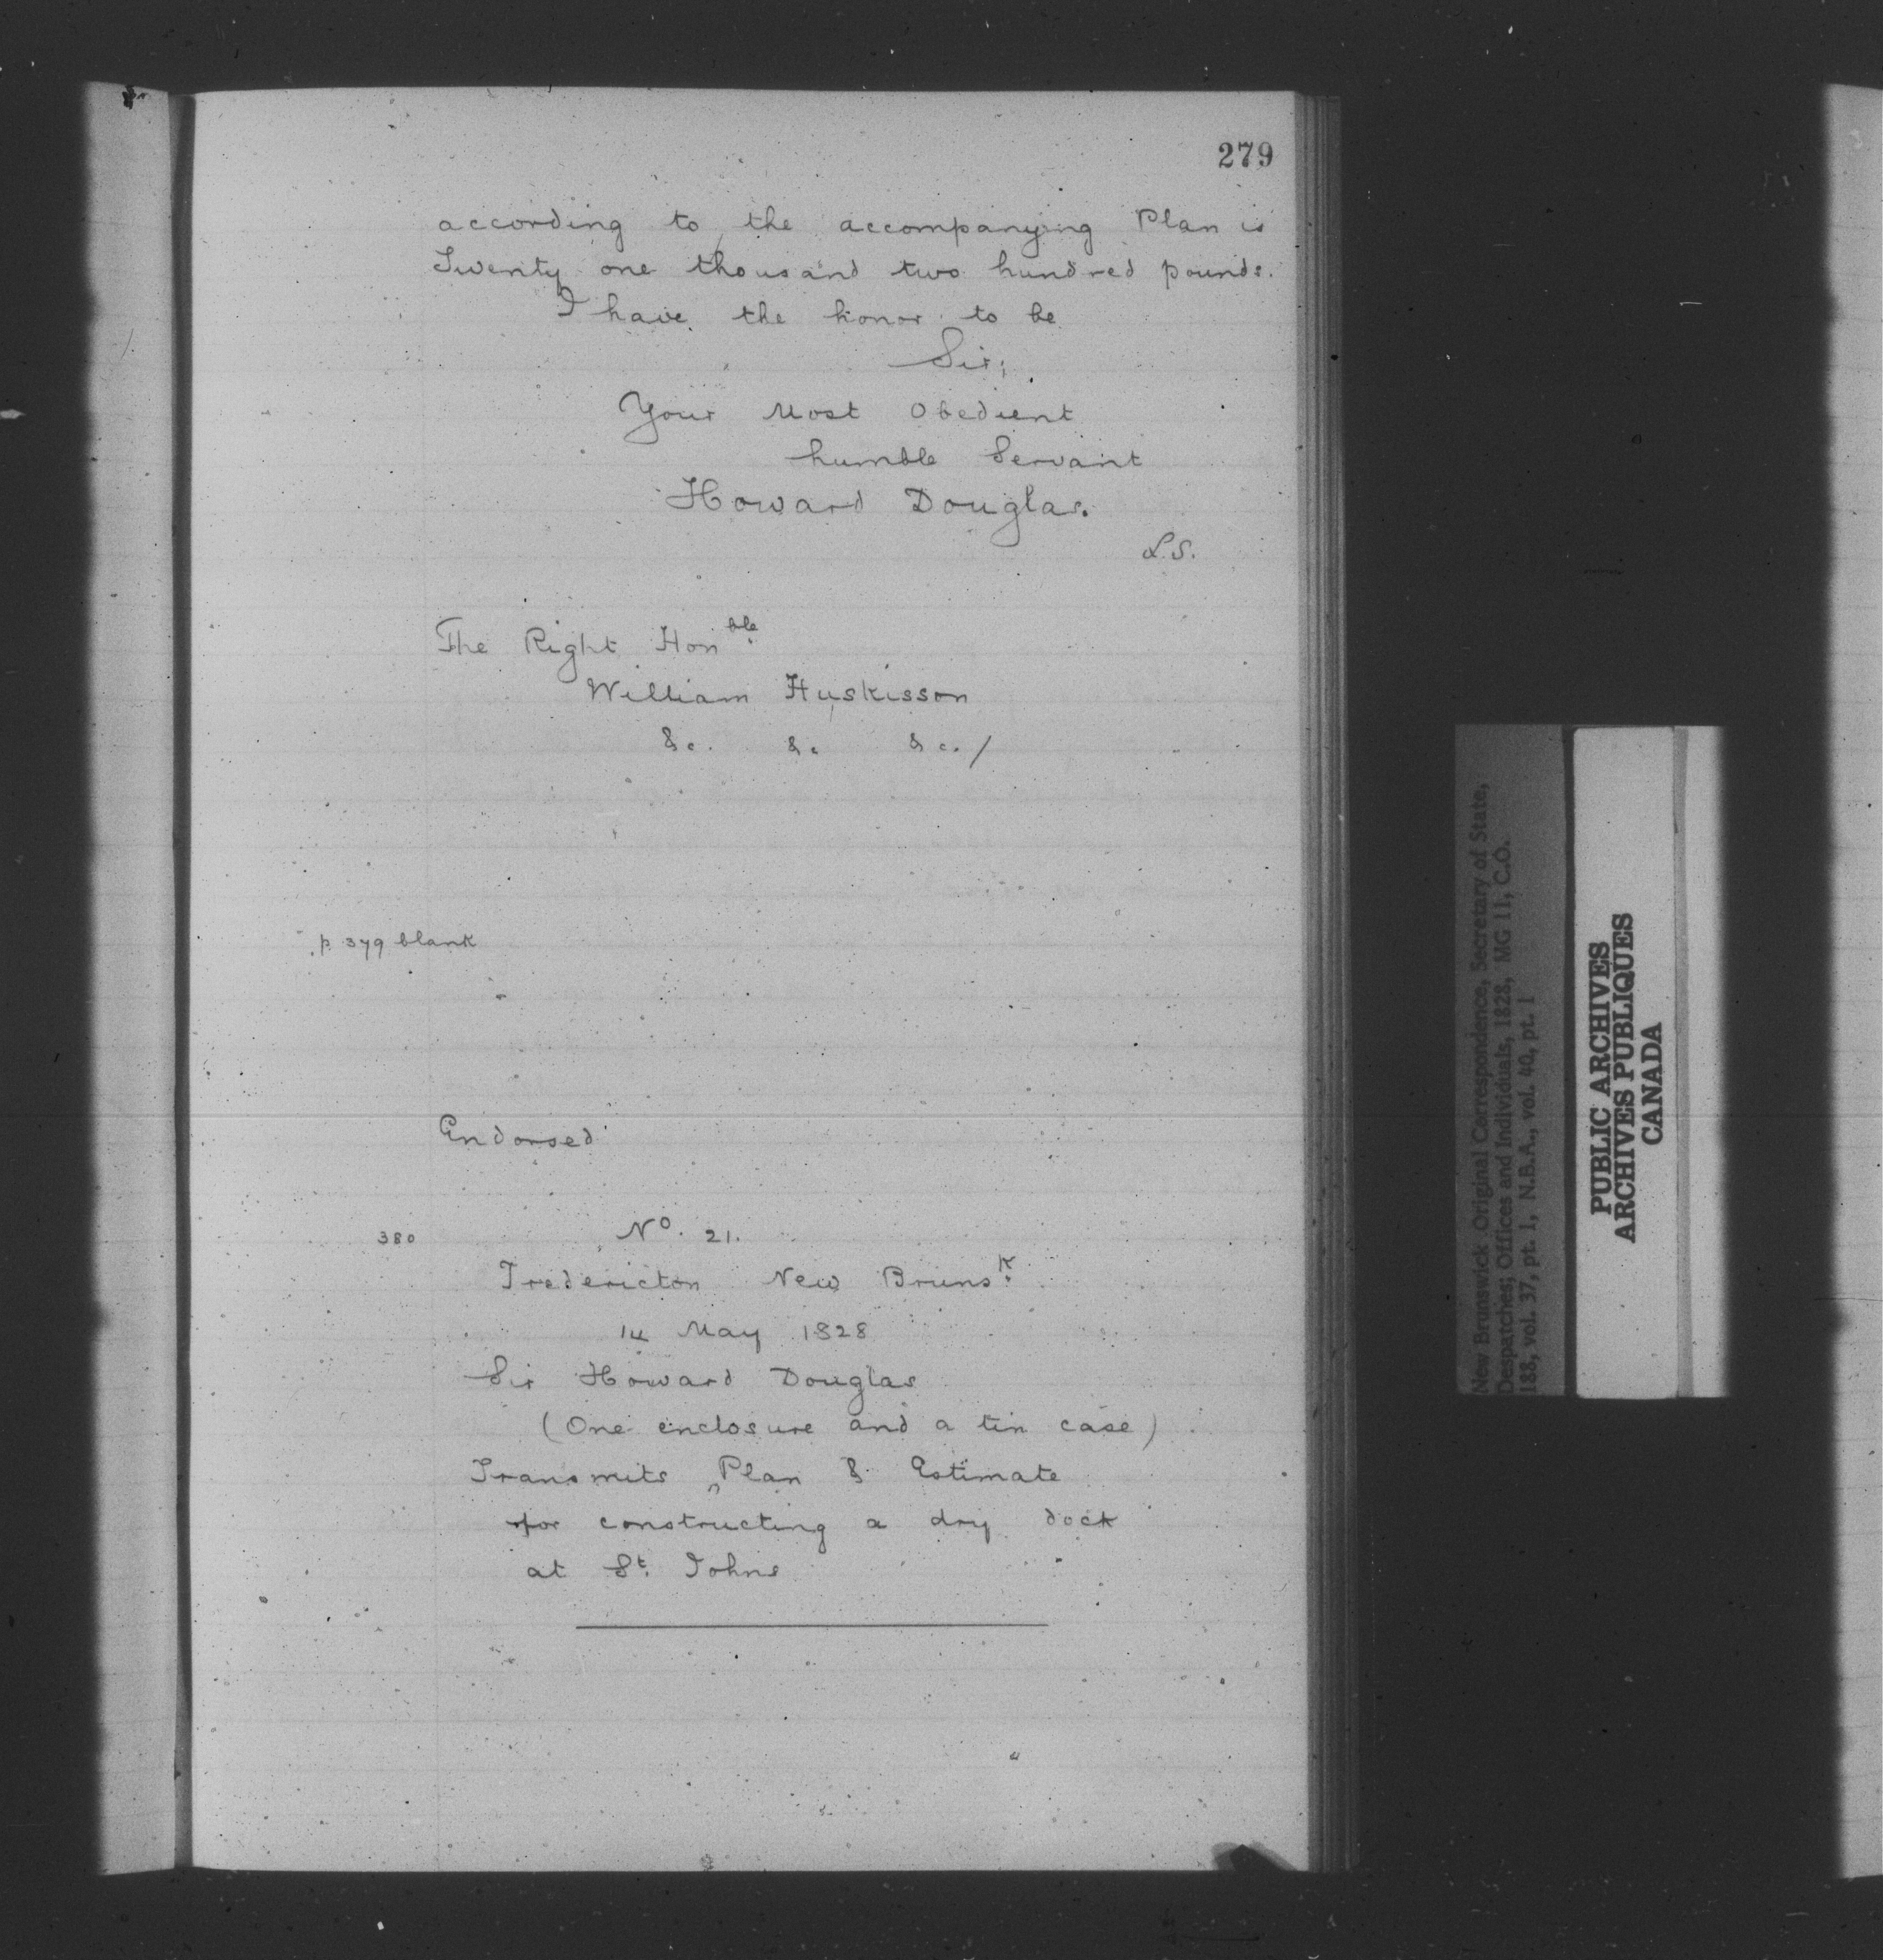 279
according to the accompanying Plan is
Twenty one thousand two hundred pounds.
I have the honor to be
Sir;
Your Most Obedient
humble Servant
Howard Douglas.
L.S.
The Right Honble.
William Huskisson
&c. &c &c./
p. 379 blank
Endorsed
380 No. 21.
Fredericton New Brunsk.
14 May 1828
Sir Howard Douglas
(One enclosure and a tin case)
Transmits Plan & Estimate
for constructing a dry dock
at St. Johns
New Brunswick Original Correspondence, Secretary of State,
Despatches; Offices and Individuals, 1828, MG 11, C.O.
188, vol. 37, pt. 1, N.B.A., vol. 40, pt. 1
PUBLIC ARCHIVES
ARCHIVES PUBLIQUES
CANADA